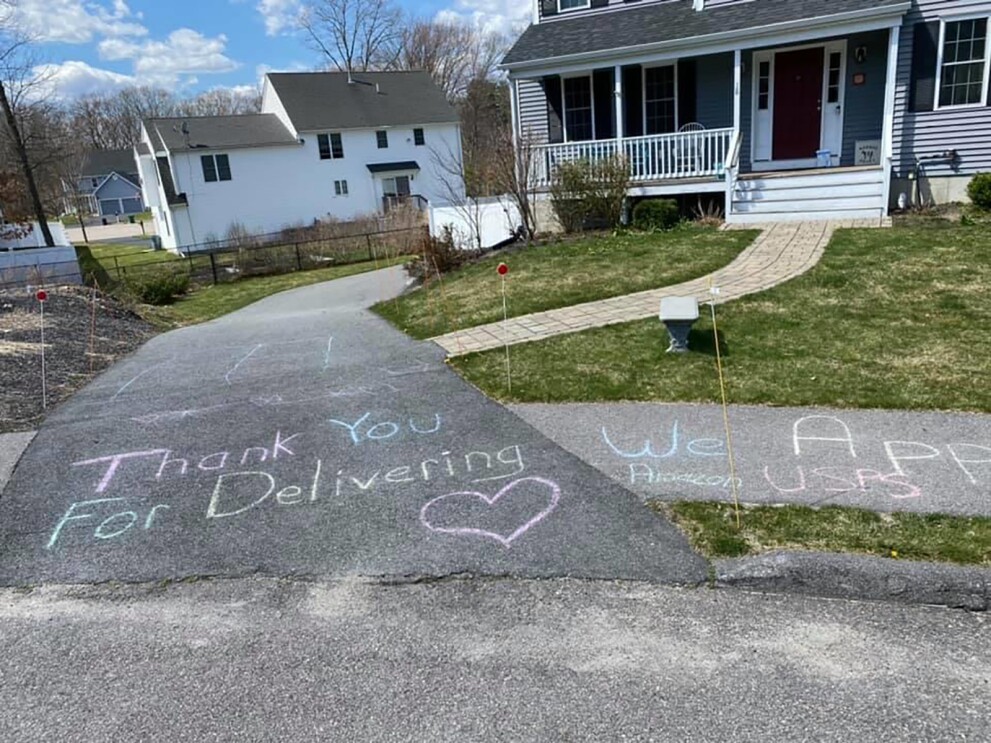 Thank You
For Delivering
We APP
Amazon USPS